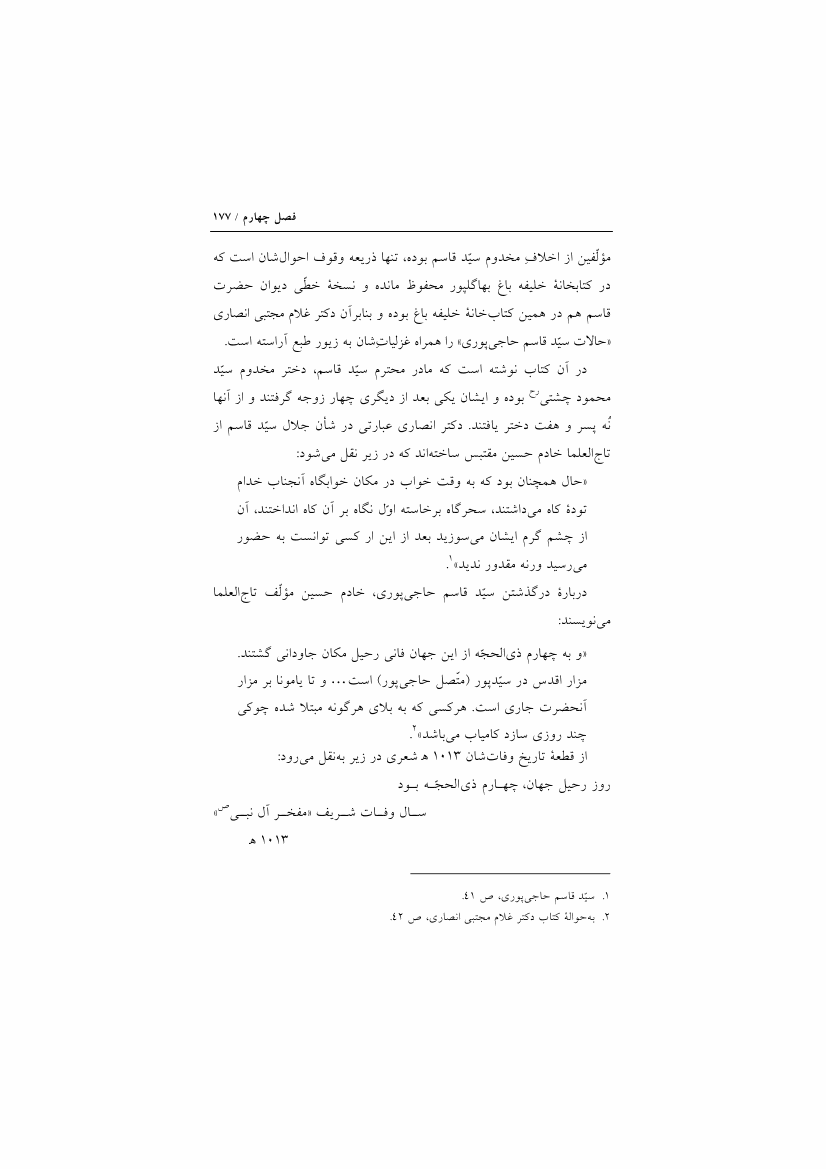 فصل چهارم / ۱۷۷
مؤلّفین از اخلافِ مخدوم سیّد قاسم بوده، تنها ذریعه وقوف احوال‌شان است که
در کتابخانهٔ خلیفه باغ بهاگلپور محفوظ مانده و نسخهٔ خطّی دیوان حضرت
قاسم هم در همین کتاب‌خانهٔ خلیفه باغ بوده و بنابرآن دکتر غلام مجتبی انصاری
«حالات سیّد قاسم حاجی‌پوری» را همراه غزلیاتِ‌شان به زیور طبع آراسته است.
در آن کتاب نوشته است که مادر محترم سیّد قاسم، دختر مخدوم سیّد
محمود چشتی‌رح بوده و ایشان یکی بعد از دیگری چهار زوجه گرفتند و از آنها
نُه پسر و هفت دختر یافتند. دکتر انصاری عبارتی در شأن جلال سیّد قاسم از
تاج‌العلما خادم حسین مقتبس ساخته‌اند که در زیر نقل می‌شود:
«حال همچنان بود که به وقت خواب در مکان خوابگاه آنجناب خدام
تودهٔ کاه می‌داشتند، سحرگاه برخاسته اوّل نگاه بر آن کاه انداختند، آن
از چشم گرم ایشان می‌سوزید بعد از این ار کسی توانست به حضور
می‌رسید ورنه مقدور ندید»۱.
دربارهٔ درگذشتن سیّد قاسم حاجی‌پوری، خادم حسین مؤلّف تاج‌العلما
می‌نویسند:
«و به چهارم ذی‌الحجّه از این جهان فانی رحیل مکان جاودانی گشتند.
مزار اقدس در سیّدپور (متّصل حاجی‌پور) است... و تا یامونا بر مزار
آنحضرت جاری است. هرکسی که به بلای هرگونه مبتلا شده چوکی
چند روزی سازد کامیاب می‌باشد»۲.
از قطعهٔ تاریخ وفات‌شان ۱۰۱۳ ه‍ شعری در زیر به‌نقل می‌رود:
روز رحیل جهان، چهـارم ذی‌الحجّـه بـود
سـال وفـات شـریف «مفخـر آل نبـی‌ص»
۱۰۱۳ ه‍
۱. سیّد قاسم حاجی‌پوری، ص ۴۱.
۲. به‌حوالهٔ کتاب دکتر غلام مجتبی انصاری، ص ۴۲.